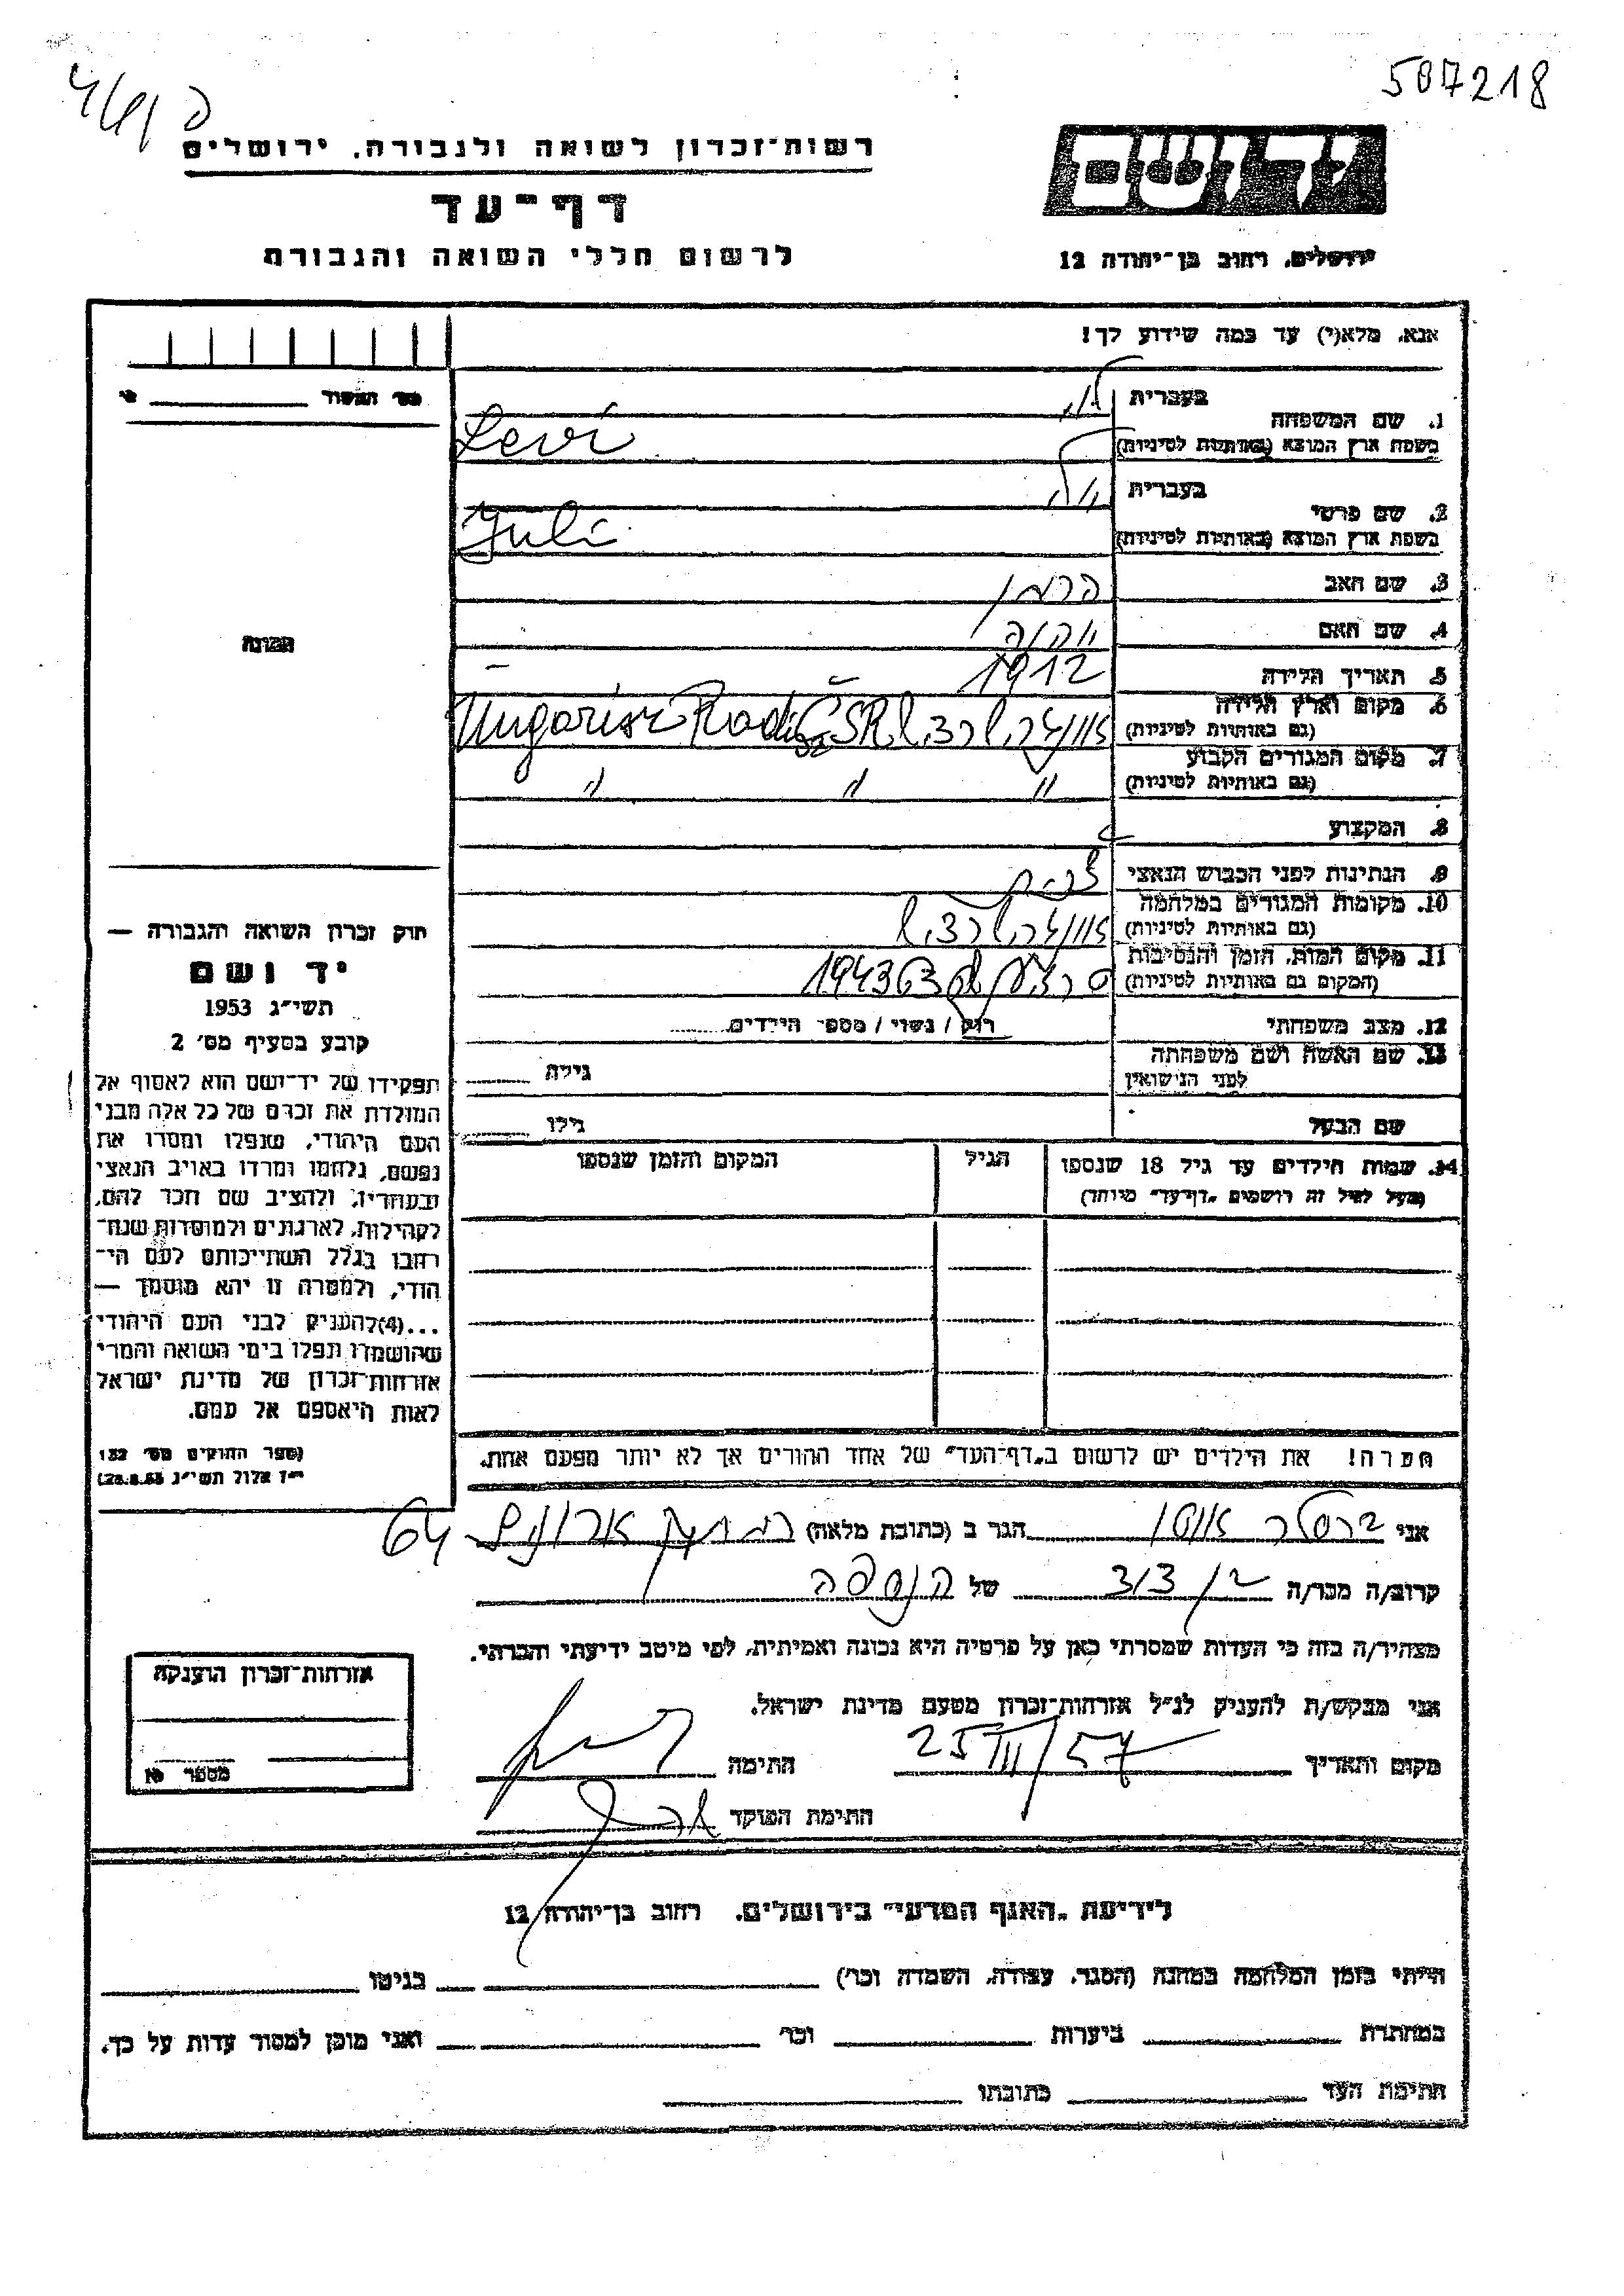 507218
רשות־זכרון לשואה ולגבורה, ירושלים
דף־עד
לרשום חללי השואה והגבורה
יד ושם
ירושלים, רחוב בן־יהודה 12
אנא, מלא(י) עד כמה שידוע לך!
1. שם המשפחה
בעברית לוי
בשפת ארץ המוצא (באותיות לטיניות) Levi
2. שם פרטי
בעברית יולי
בשפת ארץ המוצא (באותיות לטיניות) Juli
3. שם האב הרמן
4. שם האם
5. תאריך הלידה 1912 -
6. מקום וארץ הלידה
(גם באותיות לטיניות) ČSR
7. מקום המגורים הקבוע
(גם באותיות לטיניות) " " "
8. המקצוע
9. הנתינות לפני הכבוש הנאצי
10. מקומות המגורים במלחמה
(גם באותיות לטיניות)
11. מקום המות, הזמן והנסיבות
(המקום גם באותיות לטיניות) 1943
12. מצב משפחתי רווק / נשוי / מספר הילדים
13. שם האשה ושם משפחתה
לפני הנישואין גילה
שם הבעל גילו
14. שמות הילדים עד גיל 18 שנספו הגיל המקום והזמן שנספו
(מעל לגיל זה רושמים "דף־עד" מיוחד)
הערה! את הילדים יש לרשום ב"דף־העד" של אחד ההורים אך לא יותר מפעם אחת.
מס' המסור
תמונה
חוק זכרון השואה והגבורה —
יד ושם
תשי"ג 1953
קובע בסעיף מס' 2
תפקידו של יד־ושם הוא לאסוף אל
המולדת את זכרם של כל אלה מבני
העם היהודי, שנפלו ומסרו את
נפשם, נלחמו ומרדו באויב הנאצי
ובעוזריו, ולהציב שם וזכר להם,
לקהילות, לארגונים ולמוסדות שנח־
רבו בגלל השתייכותם לעם הי־
הודי, ולמטרה זו יהא מוסמך —
...(4)להעניק לבני העם היהודי
שהושמדו ונפלו בימי השואה והמרי
אזרחות־זכרון של מדינת ישראל
לאות היאספם אל עמם.
(ספר החוקים מס' 132
י"ז אלול תשי"ג 28.8.53)
אני הגר ב (כתובת מלאה) 64
קרוב/ה מכר/ה של הנספה
מצהיר/ה בזה כי העדות שמסרתי כאן על פרטיה היא נכונה ואמיתית, לפי מיטב ידיעתי והכרתי.
אני מבקש/ת להעניק לנ"ל אזרחות־זכרון מטעם מדינת ישראל.
מקום ותאריך 25/III/57 חתימה
חתימת הפוקד
אזרחות־זכרון הוענקה
מספר
לידיעת "האגף המדעי" בירושלים, רחוב בן־יהודה 12
הייתי בזמן המלחמה במחנה (הסגר, עבודה, השמדה וכו') בגיטו
במחתרת ביערות וכו' ואני מוכן למסור עדות על כך.
חתימת העד כתובתו